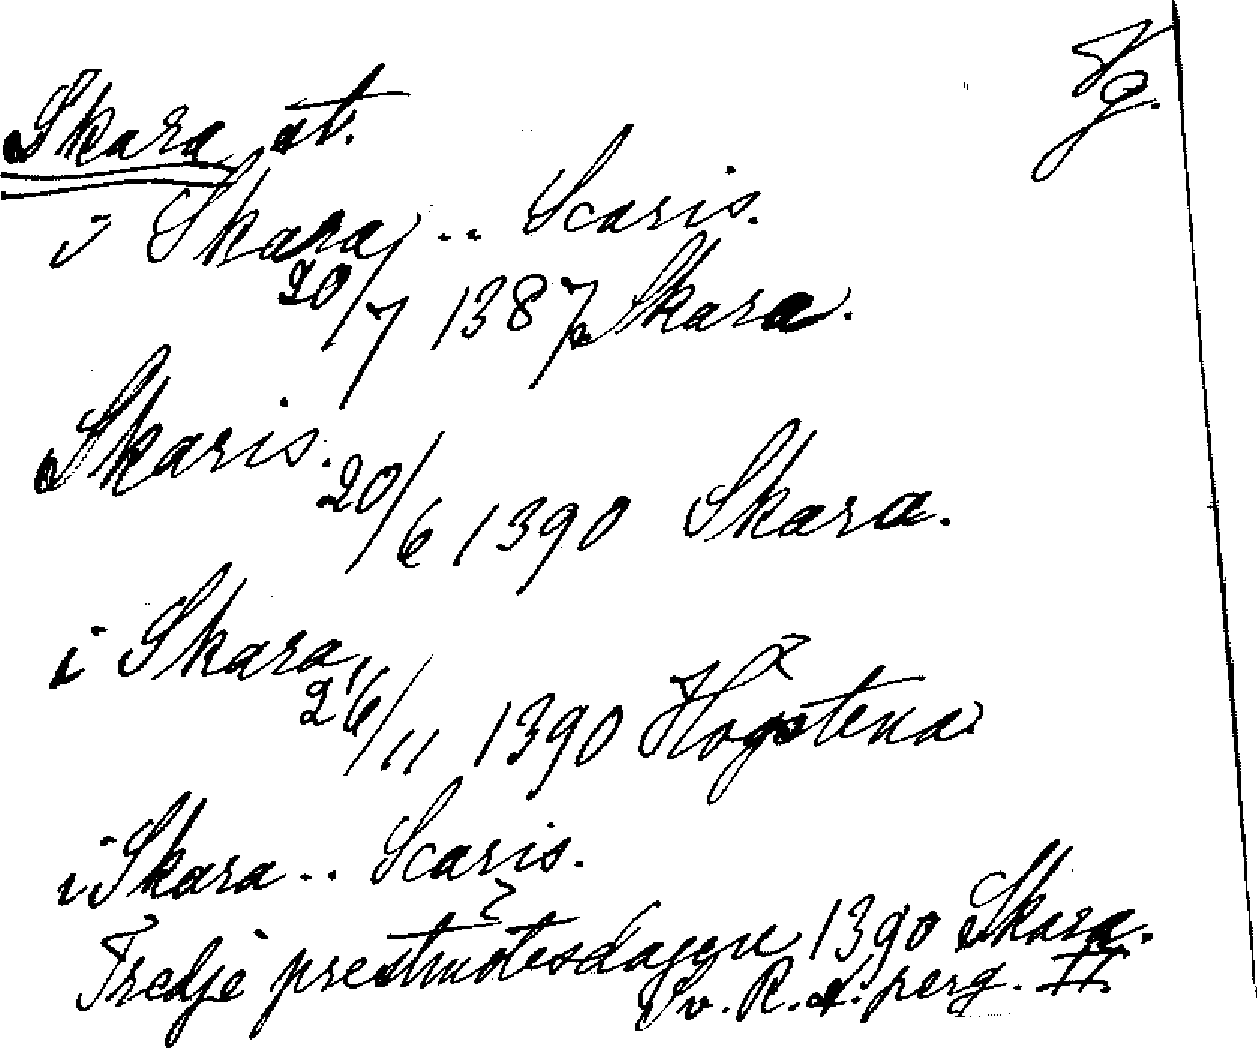 Vg.
Skara st.
i Skara, .. Scaris.
20/7 1387 Skara.
Skaris.
20/6 1390 Skara.
i Skara,
26/11 1390 Högstena
i Skara .. Scaris.
Tredje prestmötesdagen 1390 Skara.
Sv. R. A. perg. II.